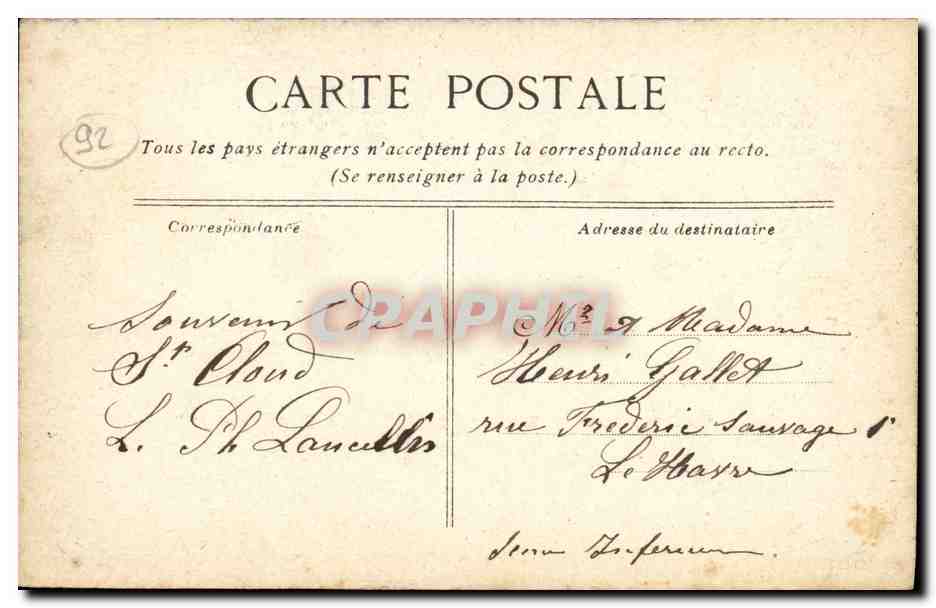 CARTE POSTALE
92
Tous les pays étrangers n'acceptent pas la correspondance au recto.
(Se renseigner à la poste.)
Correspondance
Souvenir de
St Cloud
L. Ph
Adresse du destinataire
Mr et Madame
Henri Gallet
rue Frederic Sauvage 1
Le Havre
Seine Inferieure.
CPAPHIL